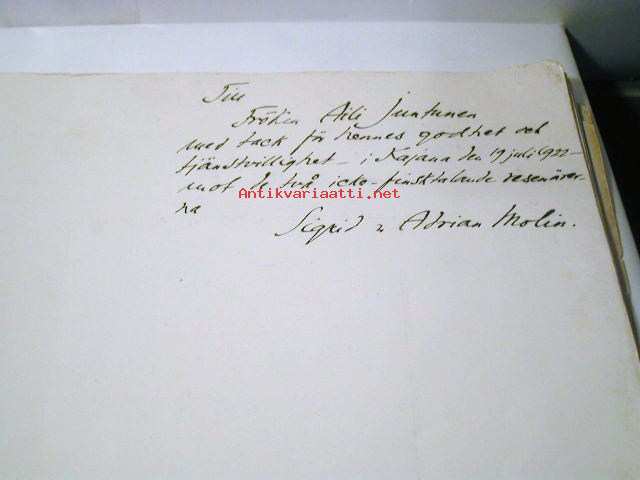 Till
Fröken Aili Juntunen
med tack för hennes godhet och
tjänstvillighet – i Kajana den 19 juli 1922 –
mot de två icke-finsktalande resenärer-
na
Antikvariaatti.net
Sigrid u Adrian Molin.